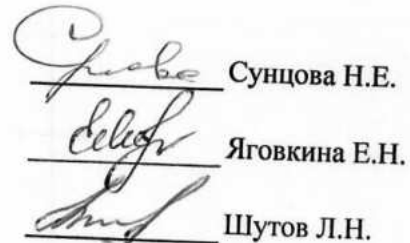 Сунцова Н.Е.
Яговкина Е.Н.
Шутов Л.Н.